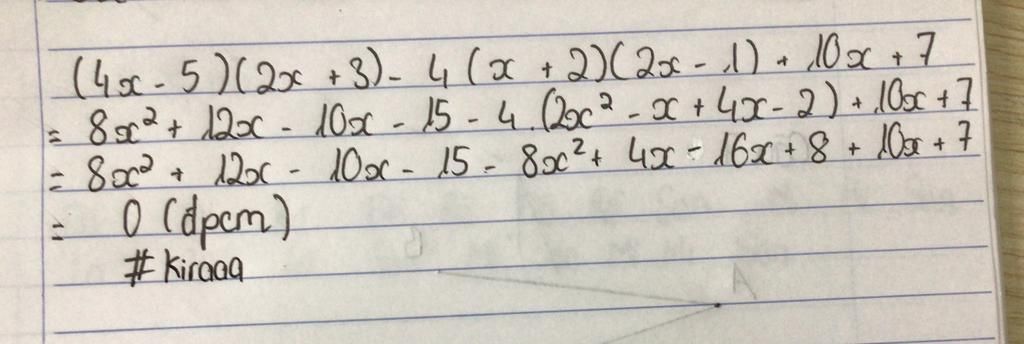 (4x - 5)(2x + 3) - 4(x + 2)(2x - 1) + 10x + 7
= 8x² + 12x - 10x - 15 - 4.(2x² - x + 4x - 2) + 10x + 7
= 8x² + 12x - 10x - 15 - 8x² + 4x - 16x + 8 + 10x + 7
= 0 (dpcm)
# Kiraaa
A